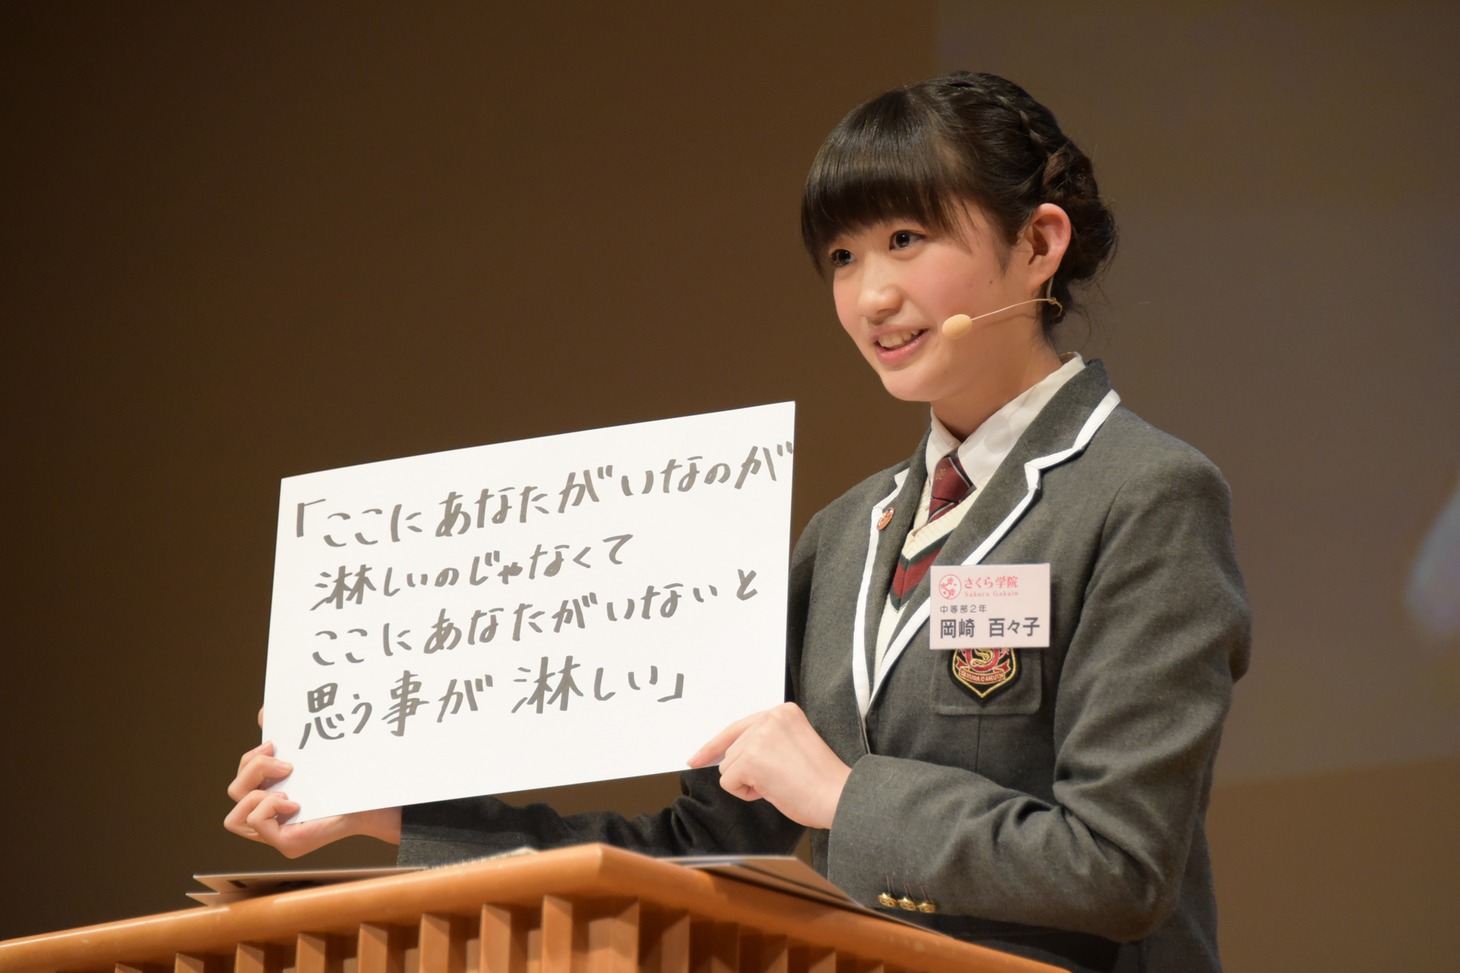 「ここにあなたがいなのが
淋しいのじゃなくて
ここにあなたがいないと
思う事が淋しい」
さくら学院
Sakura Gakuin
中等部2年
岡崎 百々子